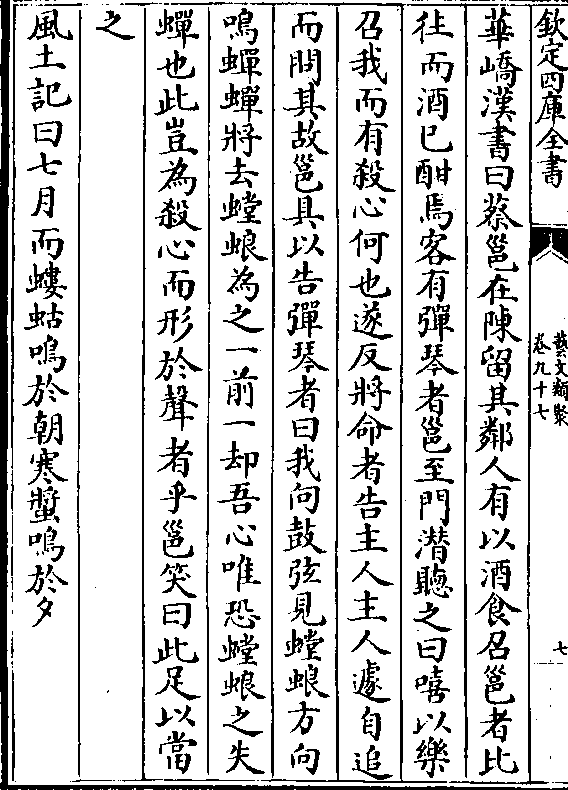 欽定四庫全書
藝文類聚
卷九十七
七
華嶠漢書曰蔡邕在陳留其鄰人有以酒食召邕者比
徃而酒已酣焉客有彈琴者邕至門潛聽之曰嘻以樂
召我而有殺心何也遂反將命者告主人主人遽自追
而問其故邕具以告彈琴者曰我向鼓弦見螳蜋方向
鳴蟬蟬將去螳蜋為之一前一却吾心唯恐螳蜋之失
蟬也此豈為殺心而形於聲者乎邕笑曰此足以當
之
風土記曰七月而螻蛄鳴於朝寒螿鳴於夕